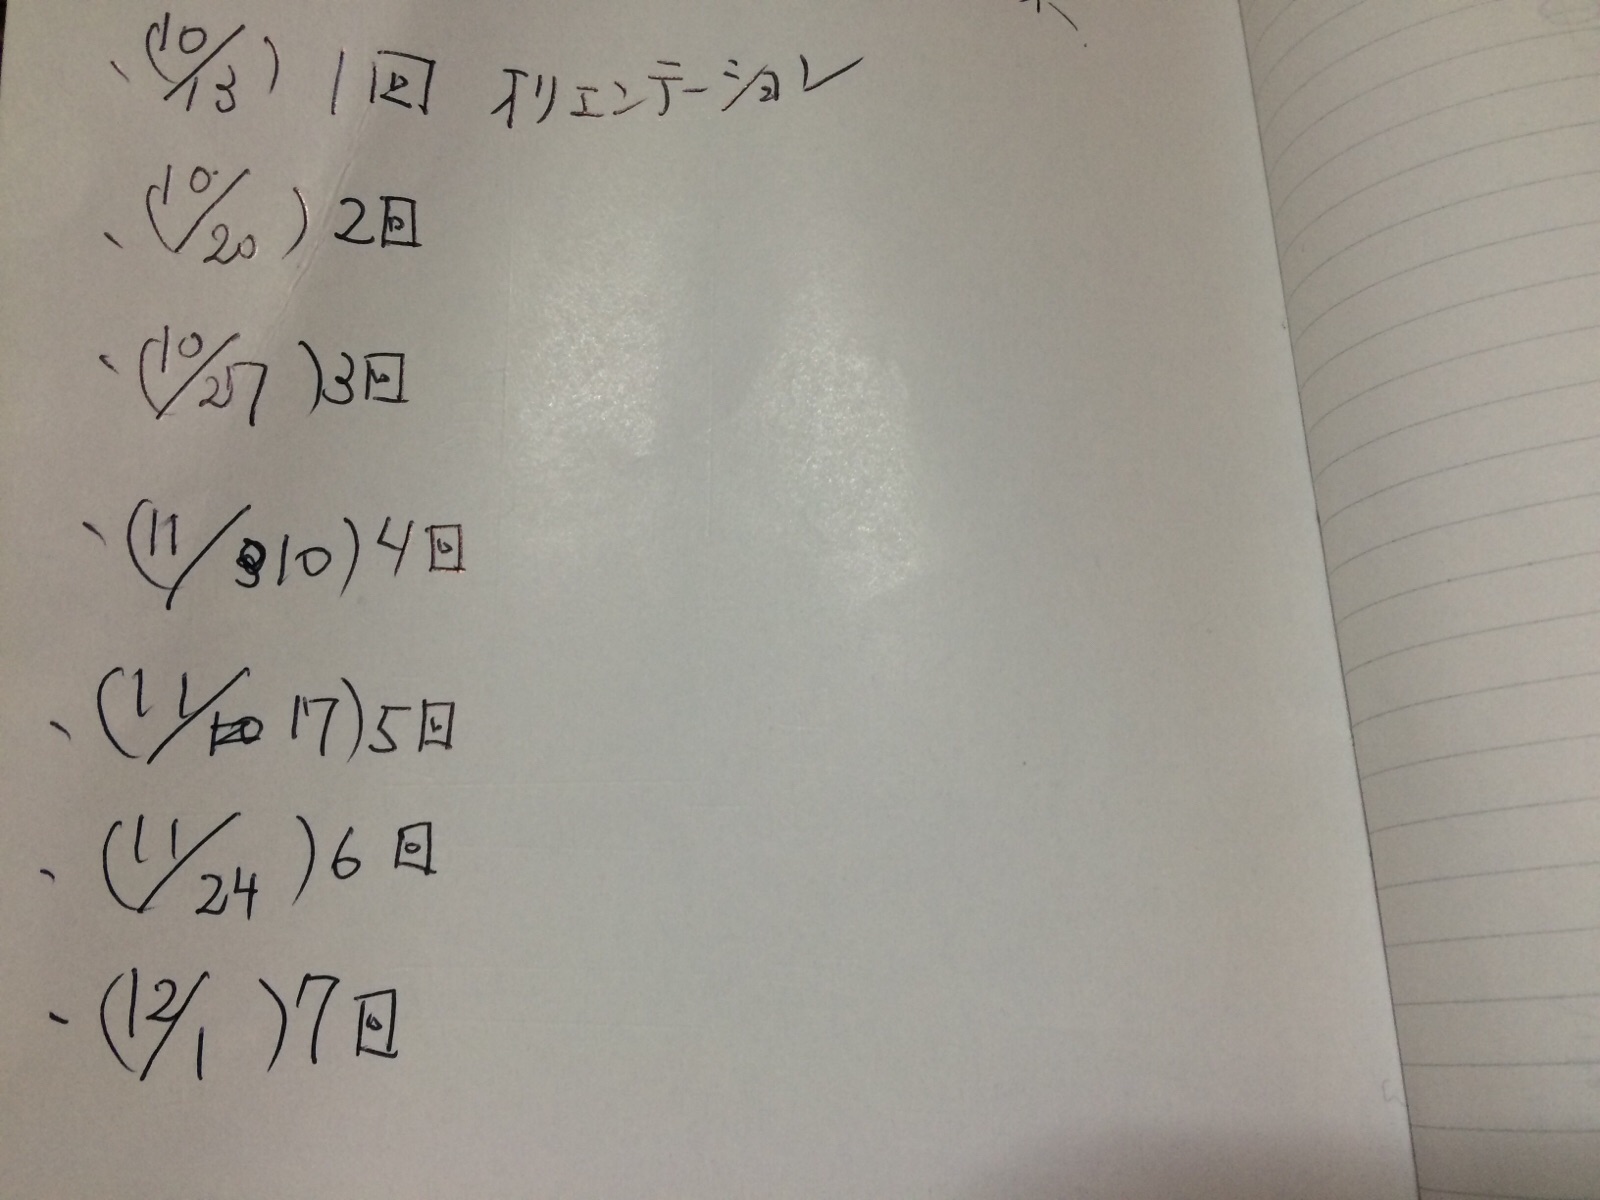 、(10/13) 1回 オリエンテーション
、(10/20) 2回
、(10/27) 3回
、(11/10) 4回
、(11/17) 5回
、(11/24) 6回
、(12/1) 7回